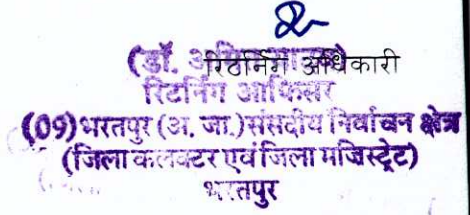 (डॉ.
रिटर्निंग अधिकारी
रिटर्निंग आफिसर
(09) भरतपुर (अ. जा.) संसदीय निर्वाचन क्षेत्र
(जिला कलक्टर एवं जिला मजिस्ट्रेट)
भरतपुर